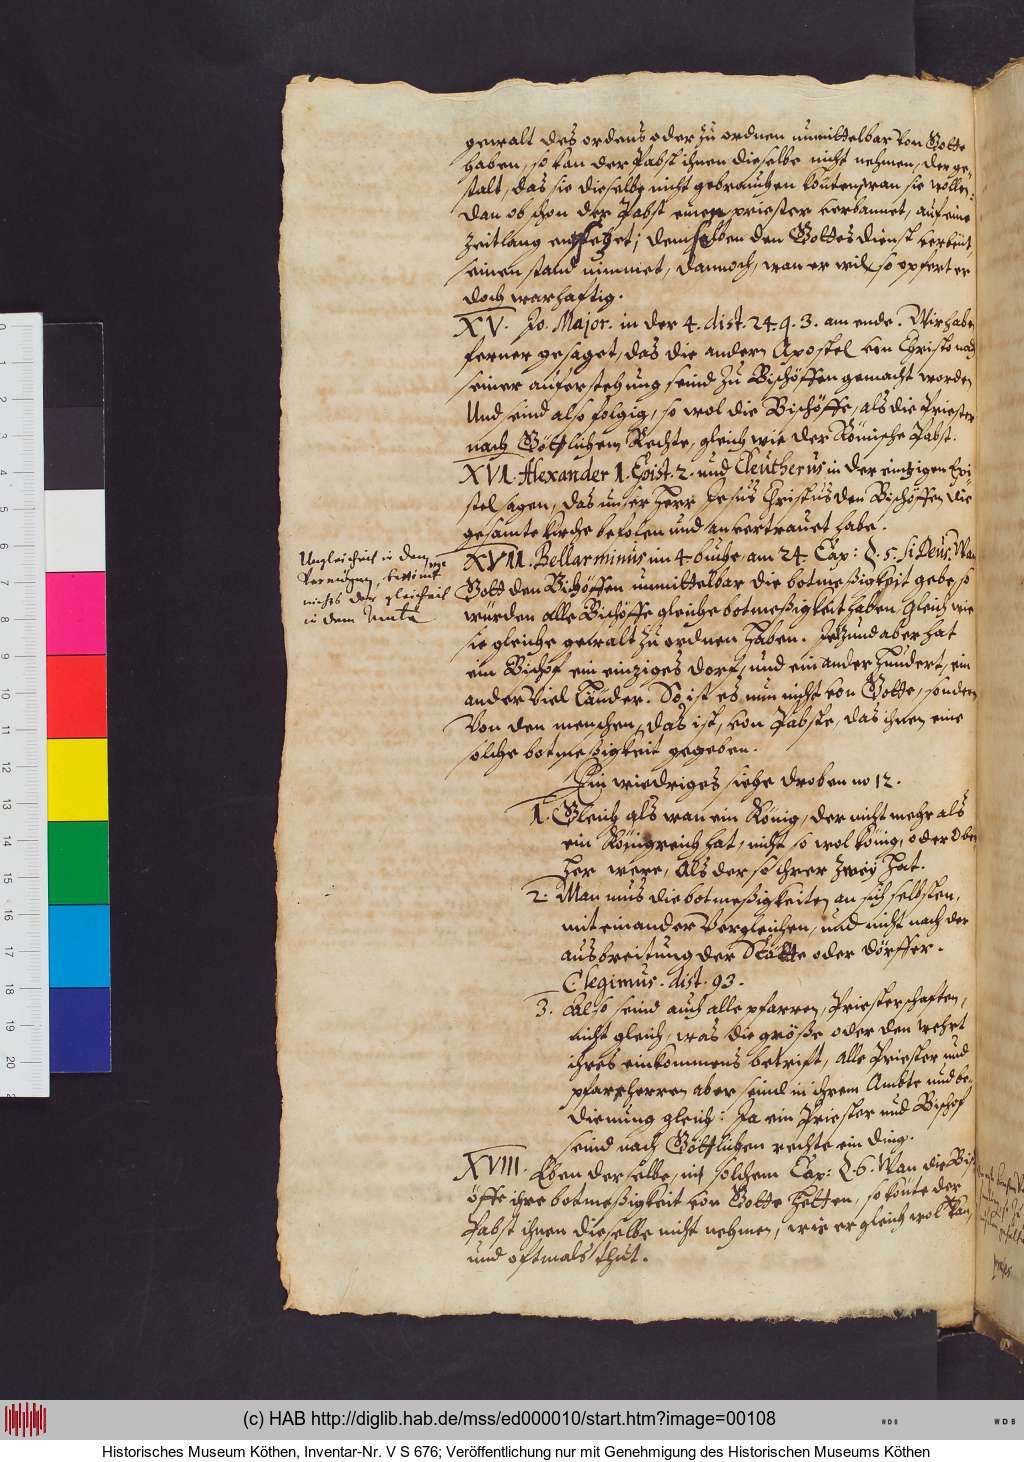 gewalt des ordens oder zu ordnen unmittelbar von Gotte
haben, so kan der Pabst ihnen dieselbe nicht nehmen, der ge-
stalt, das sie dieselbe nicht gebrauchen köntens, wan sie wollen.
Dan ob schon der Pabst einen priester verbannet, auf eine
zeitlang entsetzet, demselben den Gottesdienst verbeut,
seinen stand nimmet, dannoch, wan er wil, so opfert er
doch warhaftig.
XV. Jo. Major. in der 4. dist. 24. q. 3. am ende. Wir haben
ferner gesaget, das die andern Apostel von Christo nach
seiner auferstehung seind zu Bischöffen gemacht worden
Und seind also folgig, so wol die Bischöffe, als die Priester
nach Göttlichem Rechte, gleich wie der Römische Pabst.
XVI. Alexander 1. Epist. 2. und Eleutherus in der eintzigen Epi-
stel sagen, das unser Herr Jesus Christus den Bischöffen die
gesamte kirche befolen und anvertrauet habe.
Ungleicheit in dem
Vermögen, benimt
nichts der gleicheit
in dem Amte
XVII. Bellarminus im 4 buche am 24. Cap: §. 5. Si Deus. Wan
Gott den Bischöffen unmittelbar die botmeßigkeit gebe, so
würden alle Bischöffe gleiche botmeßigkeit haben gleich wie
sie gleiche gewalt zu ordnen haben. Jetzund aber hat
ein Bischof ein einziges dorf, und ein ander hundert, ein
ander viel Länder. So ist es nun nicht von Gotte, sondern
Von den menschen, das ist, von Pabste, das ihnen eine
solche botmeßigkeit gegeben.
Ein wiedriges siehe droben no 12.
1. Gleich als wan ein König, der nicht mehr als
ein Königreich hat, nicht so wol könig, oder Ober-
Her were, als der so ihrer zwey hat.
2. Man mus die botmeßigkeiten an sich selbsten,
mit einander Vergleichen, und nicht nach der
ausbreitung der Stätte oder dörffer.
C. legimus. dist. 93.
3. Also seind auch alle pfarren, Priesterschaften,
nicht gleich, was die größe oder den wehrt
ihres einkommens betrift, alle Priester und
pfarherren aber seind in ihrem Ambte und be-
dienung gleich: Ja ein Priester und Bischof
seind nach Göttlichen rechte ein ding.
XVIII. Eben derselbe, mit solchem Cap: §. 6. Wan die Bisch-
öffe ihre botmeßigkeit von Gotte hetten, so könte der
Pabst ihnen dieselbe nicht nehmen, wie er gleich wol kan,
und oftmals thut.
(c) HAB http://diglib.hab.de/mss/ed000010/start.htm?image=00108
Historisches Museum Köthen, Inventar-Nr. V S 676; Veröffentlichung nur mit Genehmigung des Historischen Museums Köthen